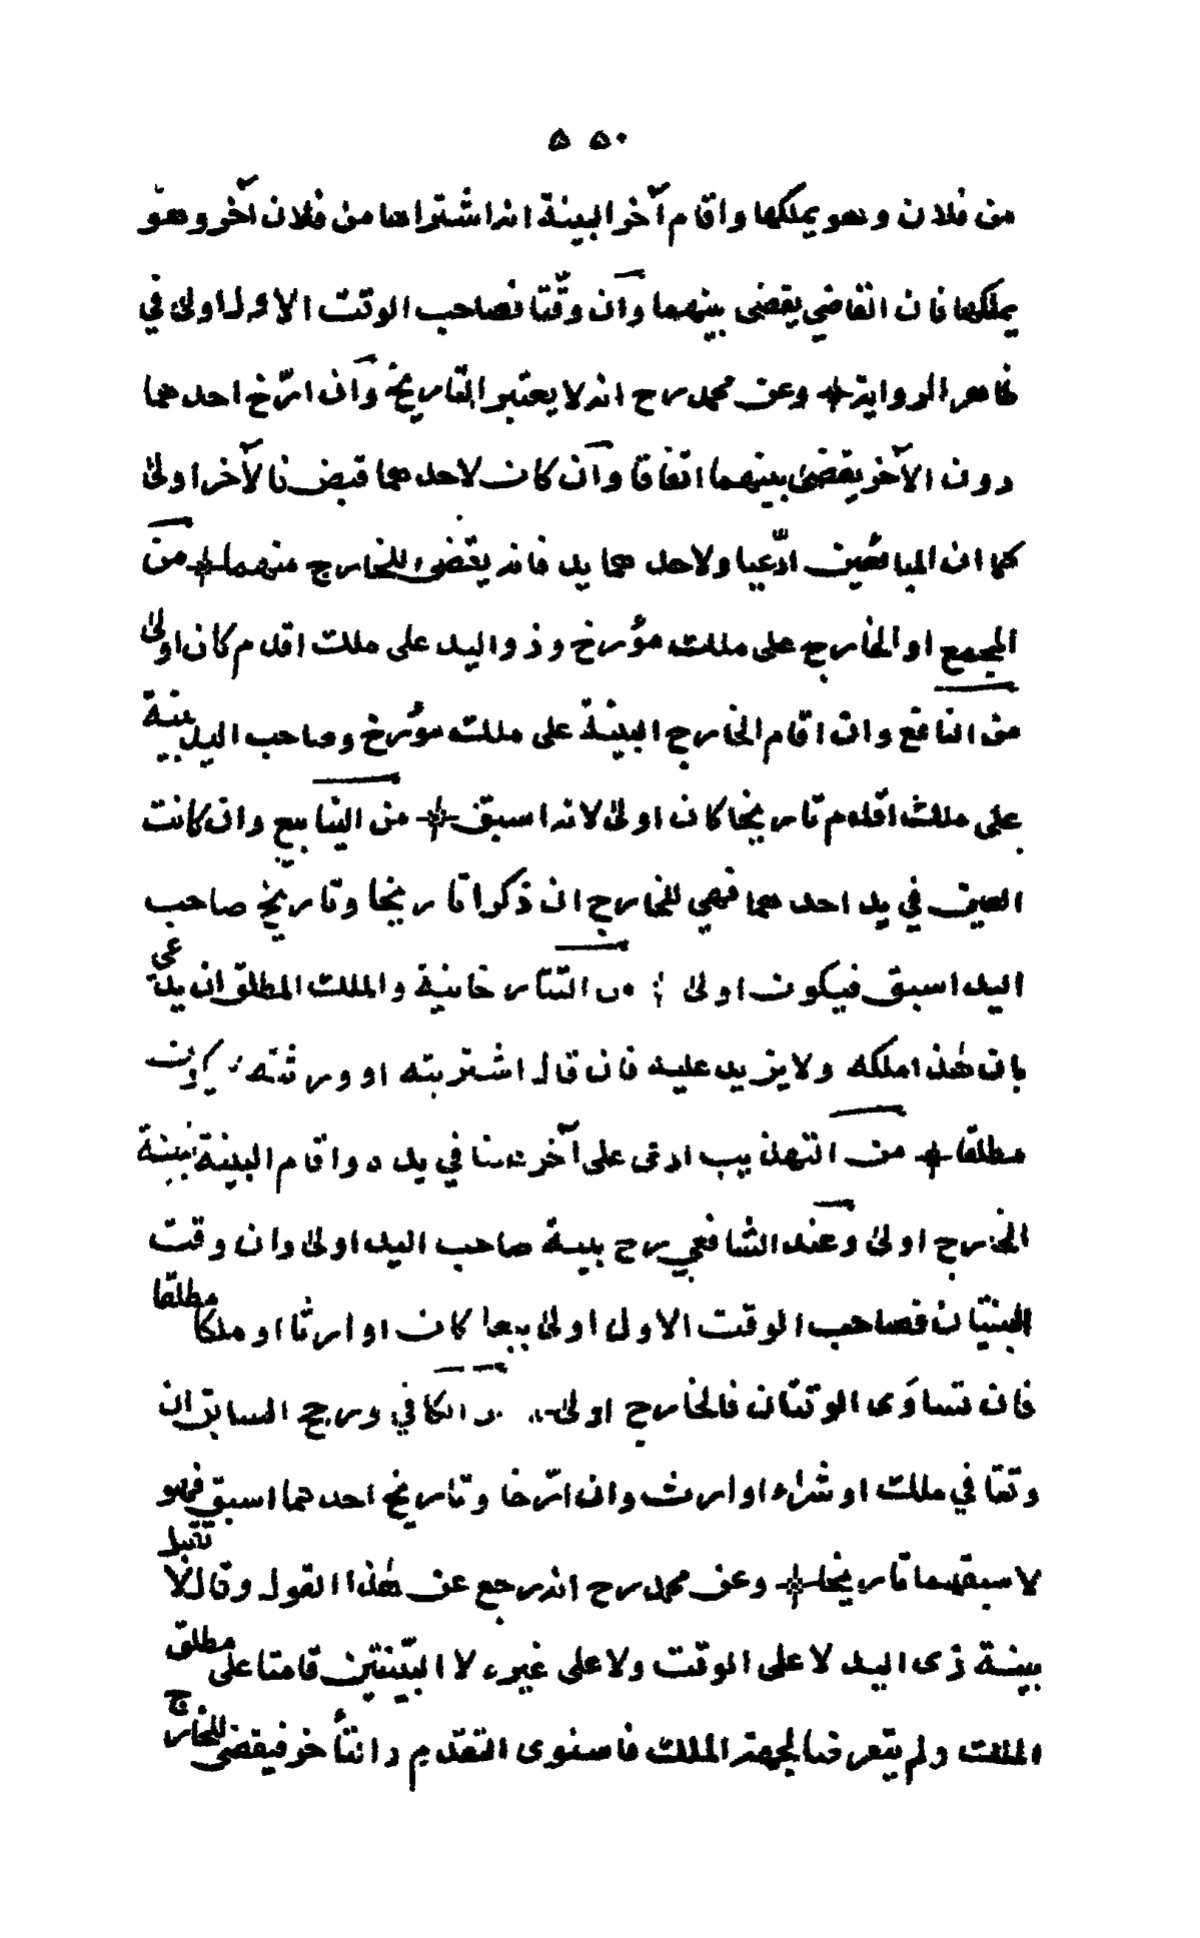 ٥٥٠
من فلان وهو يملكها واقام آخر البينة انه اشتراها من فلان آخر وهو
يملكها فان القاضي يقضى بينهما وان وقّتا فصاحب الوقت الاول اولى في
ظاهر الرواية * وعن محمد رح انه لا يعتبر التاريخ وان ارّخ احدهما
دون الآخر يقضى بينهما اتفاقا وان كان لاحدهما قبض فالآخر اولى
كما ان البائعين ادّعيا ولاحدهما يد فانه يقضى للخارج منهما * من
المجمع او الخارج على ملك مؤرخ وذو اليد على ملك اقدم كان اولى
من النافع وان اقام الخارج البينة على ملك مؤرخ وصاحب اليد بينة
على ملك اقدم تاريخا كان اولى لانه اسبق * من الينابيع وان كانت
العين في يد احدهما فهي للخارج ان ذكرا تاريخا وتاريخ صاحب
اليد اسبق فيكون اولى * من التتارخانية والملك المطلق ان يدعى
بان هٰذا ملكه ولا يزيد عليه فان قال اشتريته او ورثته لا يكون
مطلقا * من التهذيب ادعى على آخر شيئا في يده واقام البينة فبينة
الخارج اولى وعند الشافعي رح بينة صاحب اليد اولى وان وقت
البينتان فصاحب الوقت الاول اولى بيعا كان او ارثا او ملكا مطلقا
فان تساوى الوقتان فالخارج اولى * من الكافي ورجح السابق ان
وقتا في ملك او شراء او ارث وان ارّخا وتاريخ احدهما اسبق فهو
لاسبقهما تاريخا * وعن محمد رح انه رجع عن هٰذا القول وقال لا تقبل
بينة ذى اليد لا على الوقت ولا على غيره لان البينتين قامتا على مطلق
الملك ولم يتعرضا لجهة الملك فاستوى التقدم والتأخر فيقضى للخارج